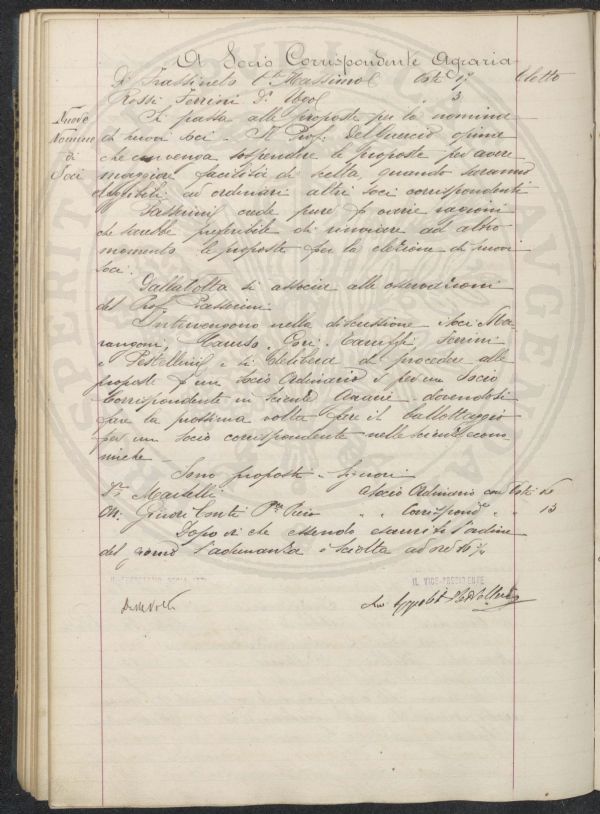 A Socio Corrispondente Agraria
Di Frassineto Cte Massimo Voti 17 Eletto
Rossi Ferrini Dr Ugo " 3
Nuove
Nomine
di
Soci
Si passa alle proposte per la nomina
di nuovi soci. Il Prof. Del Guercio opina
che convenga sospendere le proposte per avere
maggiore facilità di scelta quando saranno
eleggibili ad ordinari altri soci corrispondenti
Passerini crede pure p varie ragioni
che sarebbe preferibile di rinviare ad altro
momento le proposte per la elezione di nuovi
soci.
si associa alle osservazioni
del Prof. Passerini
Intervengono nella discussione i soci Ma-
rangoni, Caruso, Pori, Caruffi, Ferrini
e Pestellini e si delibera di procedere alle
proposte p un Socio Ordinario e per un Socio
Corrispondente in scienze Agrarie dovendosi
fare la prossima volta pure il ballottaggio
per un socio corrispondente nelle scienze econo-
miche
Sono proposti i Signori
Dr Martelli a Socio Ordinario con Voti 16
On. Ginori Conti Pe Piero " " Corrispond. " " 13
Dopo di che essendo esauriti l'ordine
del giorno l'adunanza è sciolta ad ore 16 3/4
IL VICE-PRESIDENTE